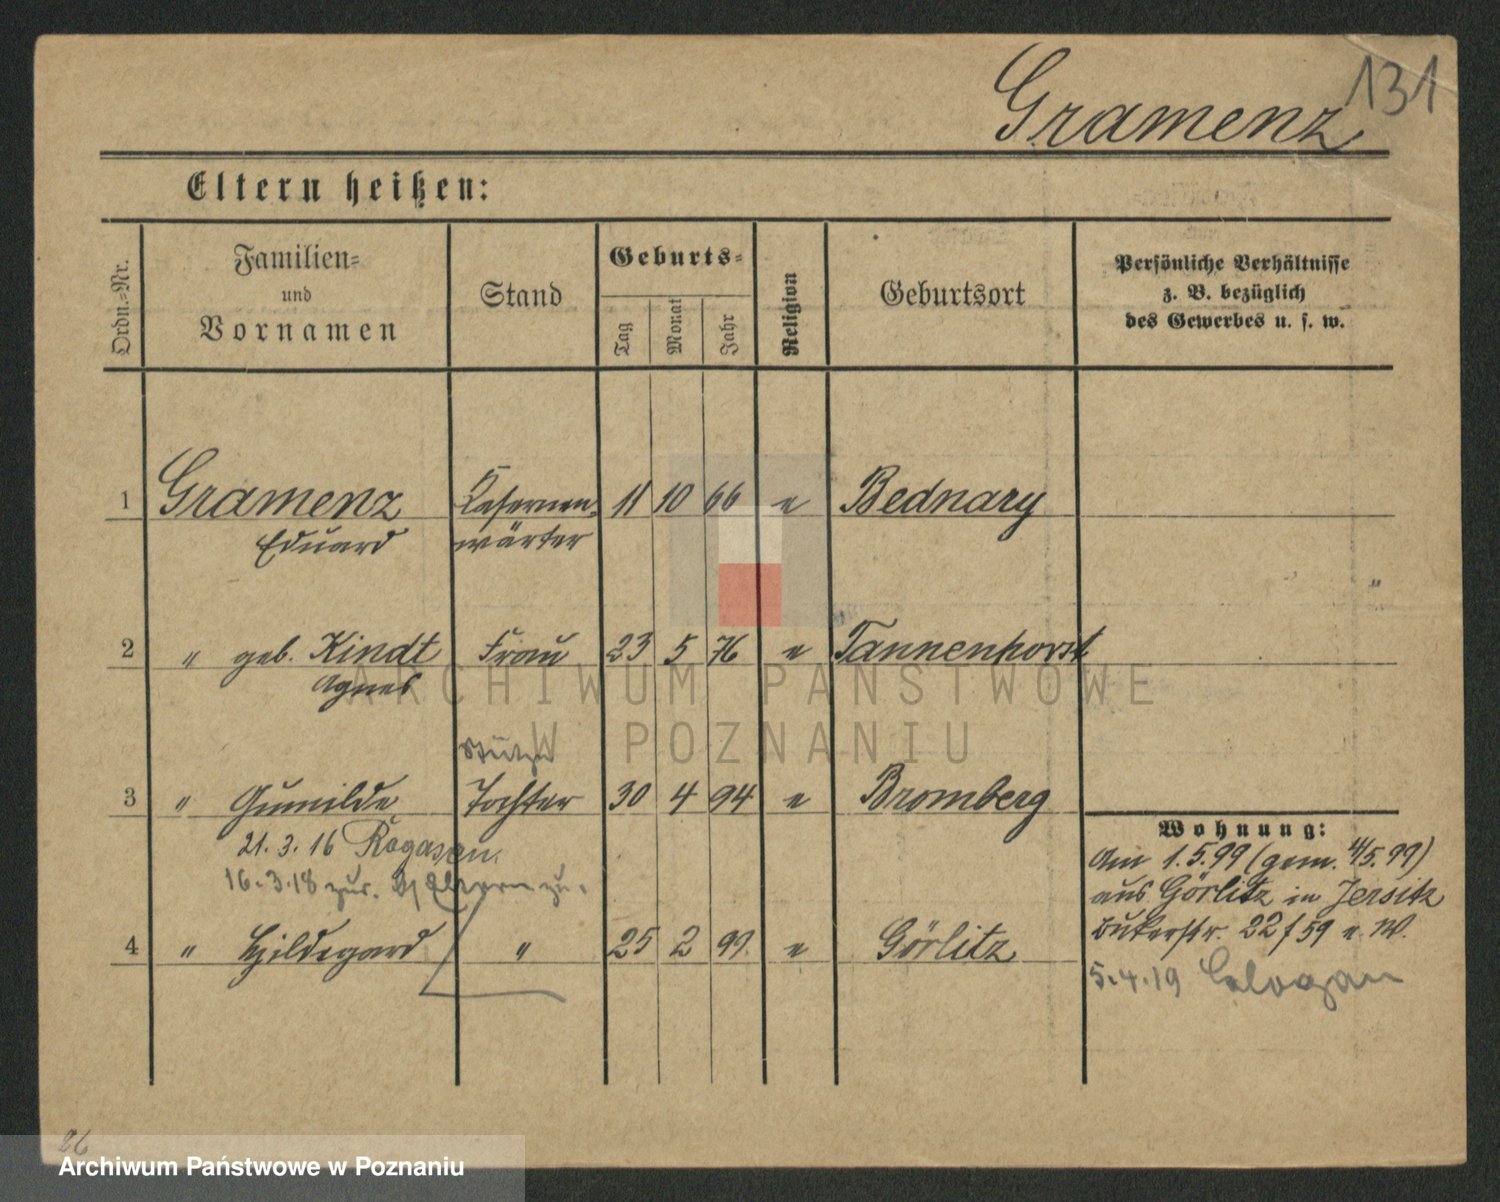 131
Gramenz
Eltern heißen:
Ordn.-Nr.
Familien-
und
Vornamen
Stand
Geburts-
Tag
Monat
Jahr
Religion
Geburtsort
Persönliche Verhältnisse
z. B. bezüglich
des Gewerbes u. s. w.
1 Gramenz Kasernen- 11 10 66 e Bednary
Eduard wärter
2 " geb. Kindt Frau 23 5 76 e Tannenhorst
Agnes
Stütze
3 " Gunilde Tochter 30 4 94 e Bromberg
21.3.16 Rogasen.
16.3.18 zur. Eltern zu.
4 " Hildegard " 25 2 99. e Görlitz
Wohnung:
Am 1.5.99 (gem. 4/5.99)
aus Görlitz in Jersitz
Bukerstr. 22/59 e. W.
5.4.19
26
ARCHIWUM PAŃSTWOWE
W POZNANIU
Archiwum Państwowe w Poznaniu